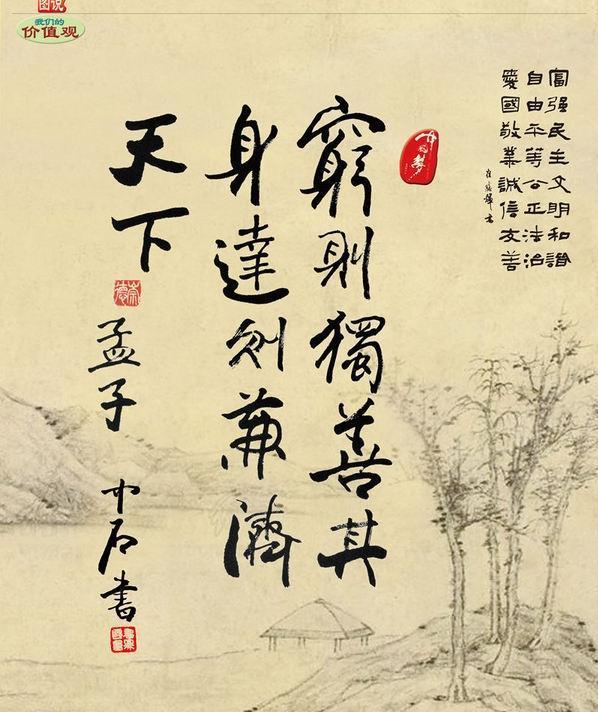 图说
我们的
价值观
富强民主文明和諧
自由平等公正法治
愛國敬業誠信友善
中国梦
窮則獨善其
身達则兼濟
天下
崇德
孟子 中石書